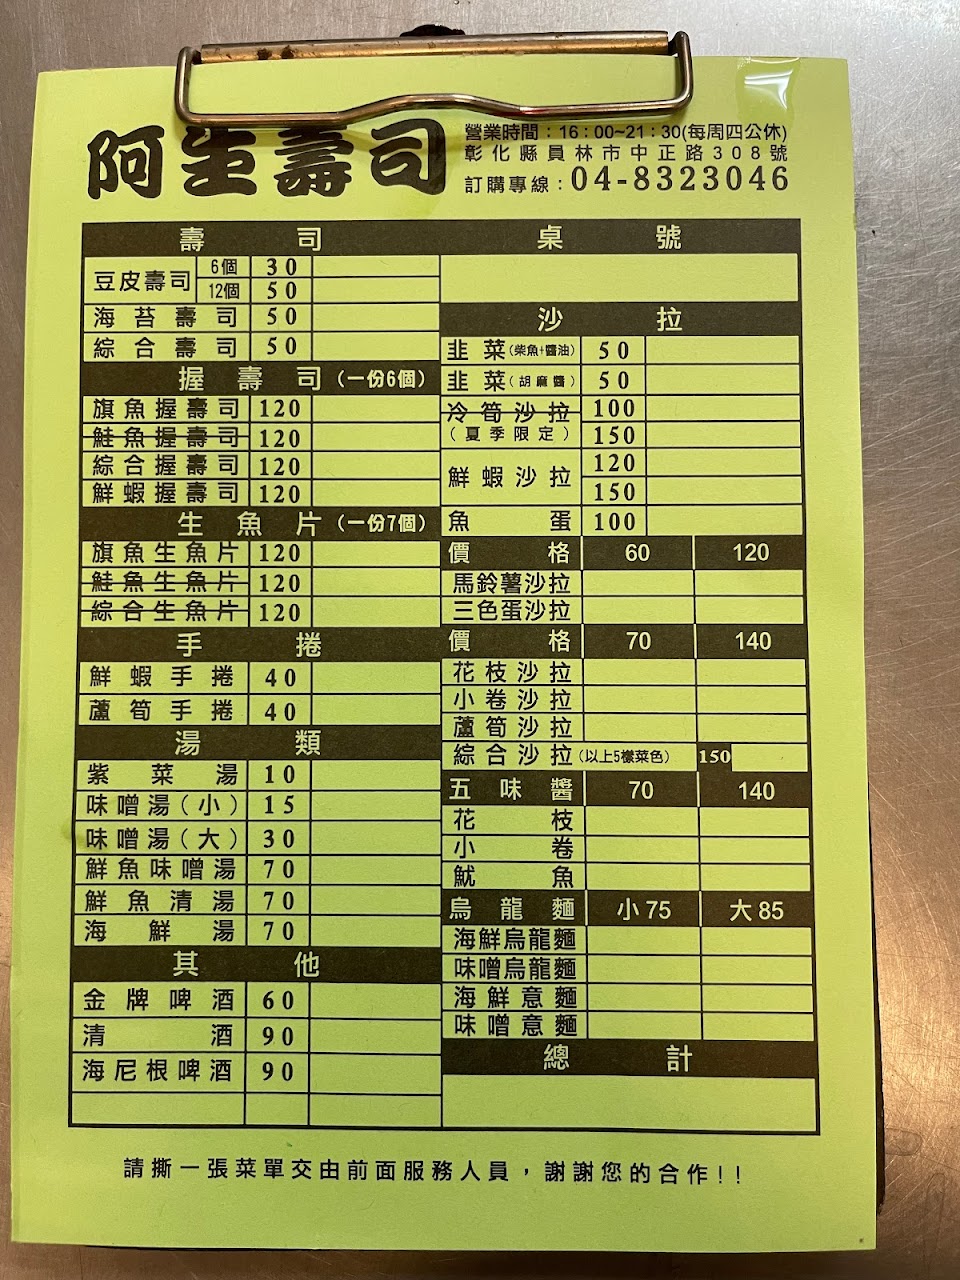 阿生壽司
營業時間：16：00~21：30(每周四公休)
彰化縣員林市中正路308號
訂購專線：04-8323046
壽司
豆皮壽司 6個 30
12個 50
海苔壽司 50
綜合壽司 50
握壽司(一份6個)
旗魚握壽司 120
鮭魚握壽司 120
綜合握壽司 120
鮮蝦握壽司 120
生魚片(一份7個)
旗魚生魚片 120
鮭魚生魚片 120
綜合生魚片 120
手捲
鮮蝦手捲 40
蘆筍手捲 40
湯類
紫菜湯 10
味噌湯(小) 15
味噌湯(大) 30
鮮魚味噌湯 70
鮮魚清湯 70
海鮮湯 70
其他
金牌啤酒 60
清酒 90
海尼根啤酒 90
桌號
沙拉
韭菜(柴魚+醬油) 50
韭菜(胡麻醬) 50
冷筍沙拉 100
(夏季限定) 150
鮮蝦沙拉 120
150
魚蛋 100
價格 60 120
馬鈴薯沙拉
三色蛋沙拉
價格 70 140
花枝沙拉
小卷沙拉
蘆筍沙拉
綜合沙拉(以上5樣菜色) 150
五味醬 70 140
花枝
小卷
魷魚
烏龍麵 小75 大85
海鮮烏龍麵
味噌烏龍麵
海鮮意麵
味噌意麵
總計
請撕一張菜單交由前面服務人員，謝謝您的合作!!